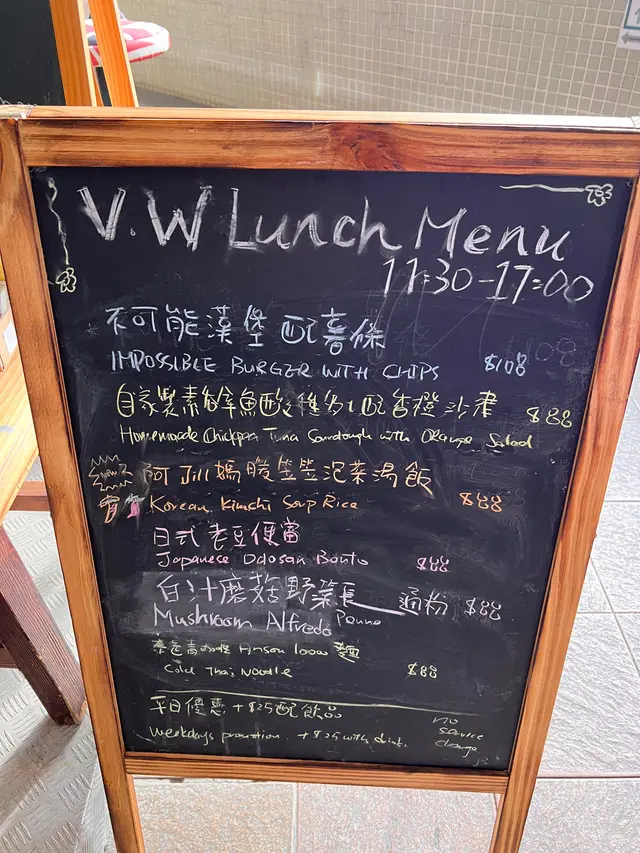 V.W Lunch Menu
11:30-17:00
不可能漢堡 配薯條
IMPOSSIBLE BURGER WITH CHIPS $108
自家製素吞拿魚酸種多士配香橙沙律 $88
Homemade Chickpea Tuna Sourdough with Orange Salad
阿Jill媽 泡菜湯飯
Korean Kimchi Soup Rice $88
日式 老豆便當
Japanese Odosan Bento $88
白汁磨菇野菜長通粉 $88
Mushroom Alfredo Penne
麵
Cold Thai Noodle $88
平日優惠 +$25配飲品
weekdays promotion +$25 with drink.
no
service
charge